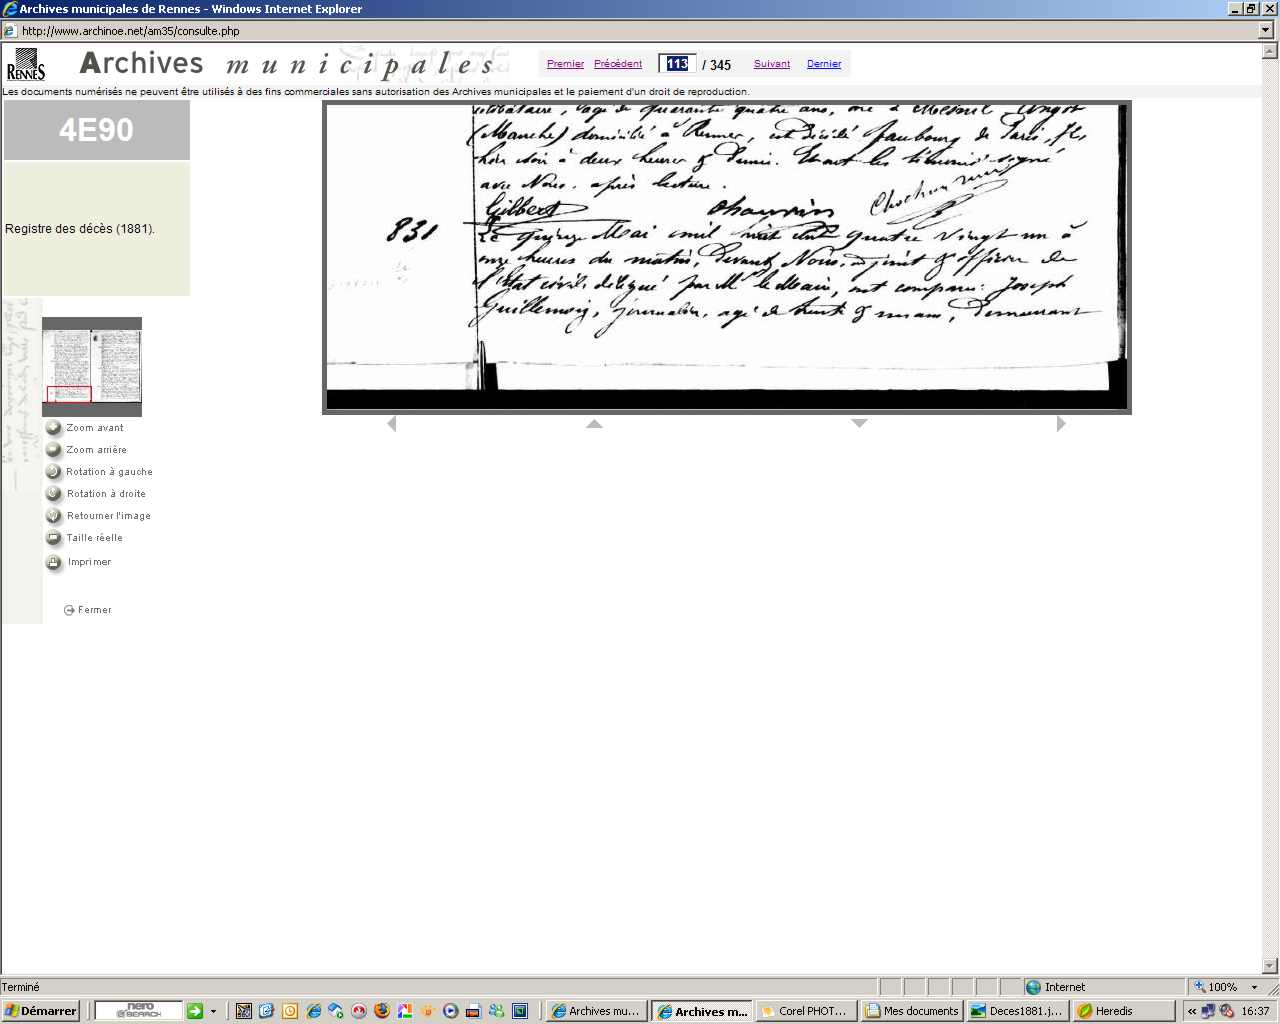 Archives municipales de Rennes - Windows Internet Explorer
http://www.archinoe.net/am35/consulte.php
RENNES
Archives municipales
Premier Précédent 113 / 345 Suivant Dernier
Les documents numérisés ne peuvent être utilisés à des fins commerciales sans autorisation des Archives municipales et le paiement d'un droit de reproduction.
4E90
Registre des décès (1881).
célibataire, âgé de quarante quatre ans, né à Mesnil Angot
(Manche) domicilié à Rennes, est décédé faubourg de Paris,
hier soir à deux heures & demie. Et ont les témoins signé
avec Nous. après lecture.
Gilbert Chauvin
831
Le quinze Mai mil huit cent quatre vingt un à
onze heures du matin, Devant Nous, adjoint & officier de
l'Etat civil délégué par Mr le Maire, ont comparu: Joseph
journalier, âgé de trente & un ans, Demeurant
Zoom avant
Zoom arrière
Rotation à gauche
Rotation à droite
Retourner l'image
Taille réelle
Imprimer
Fermer
Terminé
Internet
100%
Démarrer
nero
SEARCH
Archives mu...
Archives m...
Corel PHOT...
Mes documents
Deces1881.j...
Heredis
«
16:37